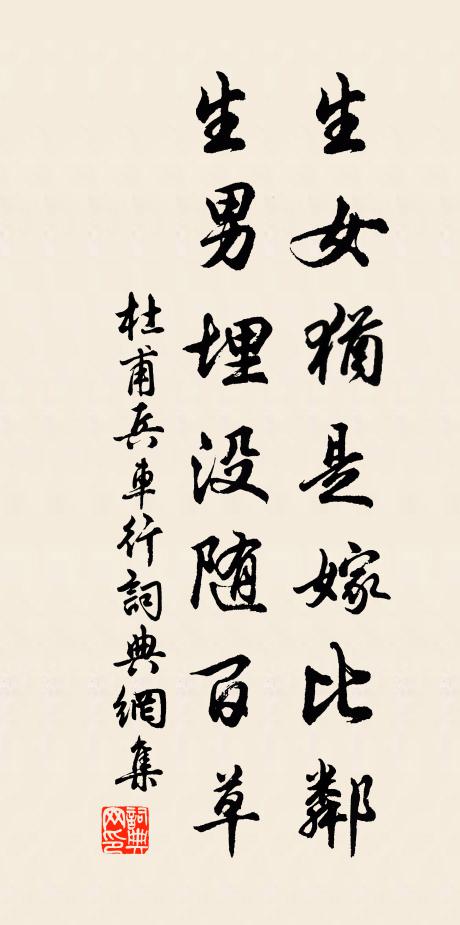 生女猶是嫁比鄰
生男埋没随百草
杜甫兵車行詞典網集
詞典網印